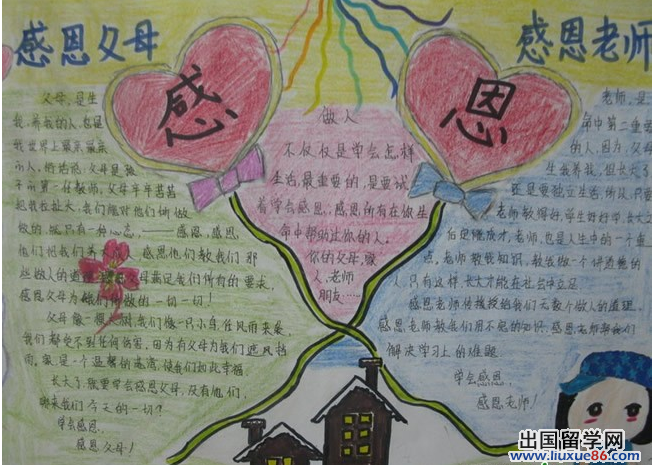 感恩父母
感恩老师
感
恩
父母,是生
我,养我的人,也是
我世界上最亲最亲
的人,俗话说,父母是孩
子的第一任教师,父母辛辛苦苦
把我在扯大,我们能对他们所做
做的,就只有一种心态——感恩,感恩
他们把我们
感恩他们教我们那
些做人的道理
母满足我们所有的要求,
感恩父母为我们所做的一切一切!
父母像一棵大树,我们像一只小鸟,任风雨来袭,
我们都受不到任何伤害,因为有父母为我们遮风挡
雨,家,是一个温馨的港湾,使我们如此幸福.
长大了,我要学会感恩父母,没有他们,
哪来我们今天的一切?
学会感恩,
感恩父母!
做人
不仅仅是学会怎样
生活,最重要的,是要试
着学会感恩,感恩所有在你生
命中帮助过你的人.
你的父母,家
人,老师
朋友……
老师,是
命中第二重要
的人,因为,父母
生我养我,但长大了
还是要独立生活,所以,只要
老师教得好,学生好好学,长大之
后定能成才,老师,也是人生中的一个重
点,老师教我知识,教我做一个讲道德的
人,只有这样,长大才能在社会中立足
感恩老师传授授给我们无数个做人的道理,
感恩老师教我们用不完的知识,感恩老师帮我们
解决学习上的难题
学会感恩,
感恩老师!
出国留学网
www.liuxue86.com